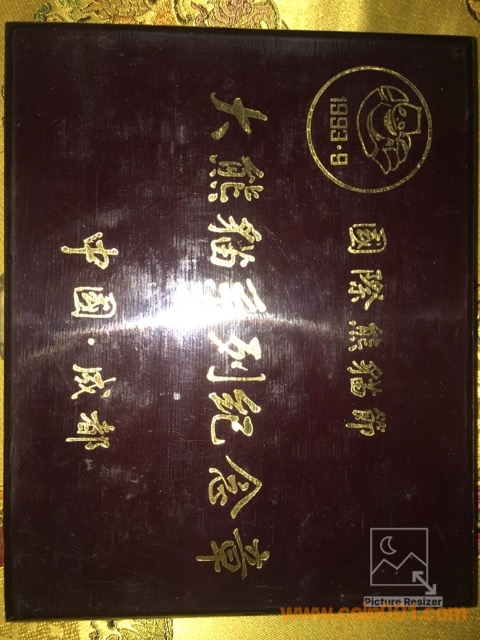 1993·9
國際熊貓節
大熊貓系列纪念章
中國·成都
Picture Resizer
www.coin001.com